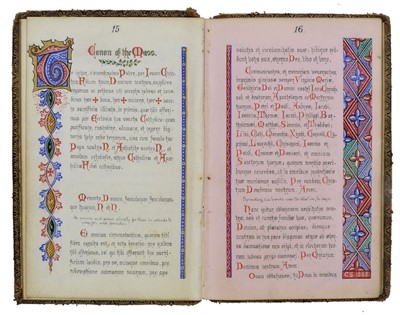 15
Canon of the Mass.
Te igitur, clementissime Pater, per Jesum Chris-
tum Filium tuum Dominum nostrum, supplices
rogamus ac petimus uti accepta habeas et bene-
dicas, hæc ✠ dona, hæc ✠ munera, hæc ✠ sancta
sacrificia illibata, in primis, quæ tibi offeri-
mus pro Ecclesia tua sancta Catholica: quam
pacificare, custodire, adunare, et regere digne-
ris toto orbe terrarum, una cum famulo tuo
Papa nostro N. et Antistite nostro N. et
omnibus orthodoxis, atque Catholicæ et Apos-
tolicæ Fidei cultoribus.
Memento, Domine, famulorum famularum-
que tuarum, N. et N.
Et omnium circumstantium, quorum tibi
fides cognita est, et nota devotio: pro quibus
tibi offerimus, vel qui tibi offerunt hoc sacrifi-
cium laudis, pro se, suisque omnibus, pro
redemptione animarum suarum, pro spe
16
salutis et incolumitatis suæ: tibique red-
dunt vota sua, æterno Deo, vivo et vero.
Communicantes, et memoriam venerantes,
imprimis gloriosæ semper Virginis Mariæ
Genitricis Dei et Domini nostri Jesu Christi:
sed et beatorum Apostolorum et Martyrum
tuorum, Petri et Pauli, Andreæ, Jacobi,
Joannis, Thomæ, Jacobi, Philippi, Bar-
tholomæi, Matthæi, Simonis, et Thaddæi:
Lini, Cleti, Clementis, Xysti, Cornelii, Cy-
priani, Laurentii, Chrysogoni, Joannis et
Pauli, Cosmæ et Damiani, et omnium
Sanctorum tuorum: quorum meritis preci-
busque concedas, ut in omnibus protectionis
tuæ muniamur auxilio. Per eundem Chris-
tum Dominum nostrum. Amen.
Hanc igitur oblationem servitutis nos-
træ, sed et cunctæ familiæ tuæ, quæsumus,
Domine, ut placatus accipias: diesque
nostros in tua pace disponas, atque ab æter-
na damnatione nos eripi, et in electorum tuo-
rum jubeas grege numerari. Per Christum
Dominum nostrum. Amen.
Quam oblationem, tu Deus in omnibus